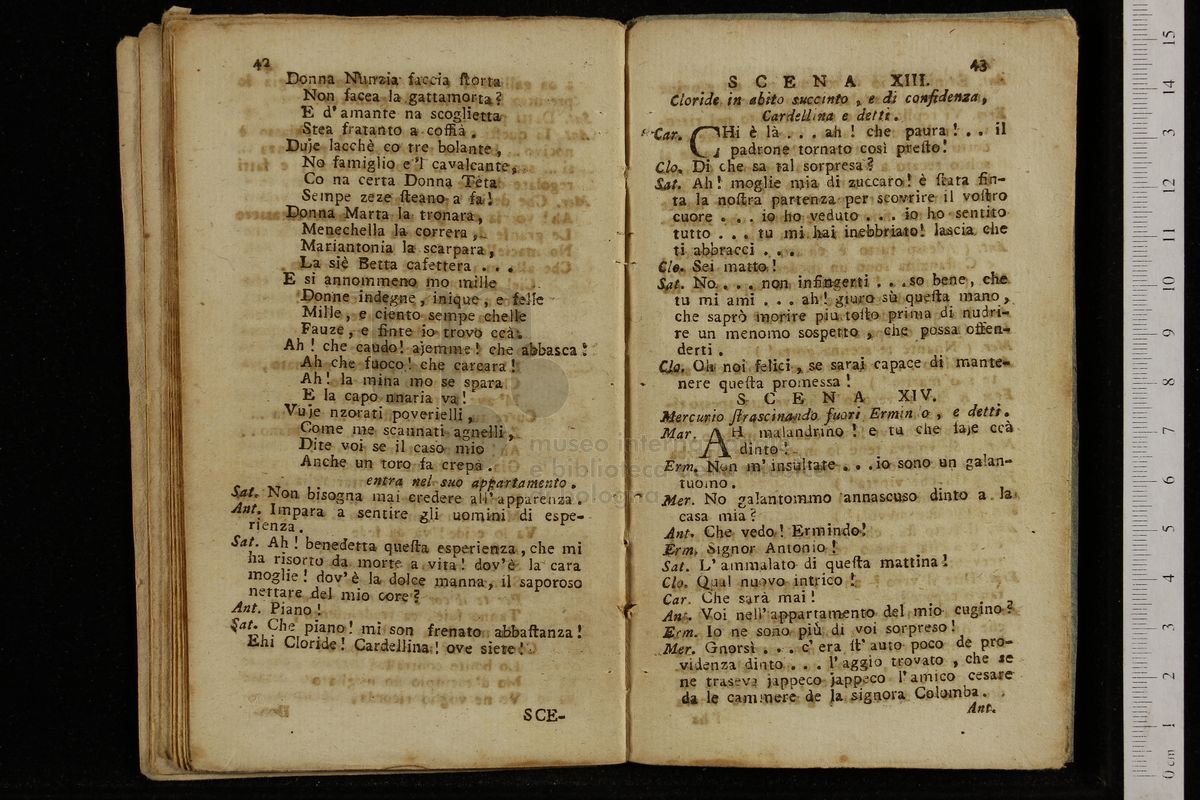 42
Donna Nunzia faccia ſtorta
Non facea la gattamorta?
E d' amante na scoglietta
Stea fratanto a coffià.
Duje lacchè co tre bolante,
No famiglio e 'l cavalcante,
Co na certa Donna Teta
Sempe zeze ſteano a fa!
Donna Marta la tronara,
Menechella la correra,
Mariantonia la scarpara,
La siè Betta cafettera . . .
E si annommeno mo mille
Donne indegne, inique, e felle
Mille, e ciento sempe chelle
Fauze, e finte io trovo ccà.
Ah! che caudo! ajemme! che abbasca!
Ah che fuoco! che carcara!
Ah! la mina mo se spara
E la capo nnaria va!
Vuje nzorati poverielli,
Come me scannati agnelli,
Dite voi se il caso mio
Anche un toro fa crepa.
entra nel suo appartamento.
Sat. Non bisogna mai credere all' apparenza.
Ant. Impara a sentire gli uomini di espe-
rienza.
Sat. Ah! benedetta queſta esperienza, che mi
ha risorto da morte a vita! dov'è la cara
moglie! dov'è la dolce manna, il saporoso
nettare del mio core?
Ant. Piano!
Sat. Che piano! mi son frenato abbaſtanza!
Ehi Cloride! Cardellina! ove siete!
SCE-
43
SCENA XIII.
Cloride in abito succinto, e di confidenza,
Cardellina e detti.
Car. CHi è là . . . ah! che paura! . . il
padrone tornato così preſto!
Clo. Di che sa tal sorpresa?
Sat. Ah! moglie mia di zuccaro! è ſtata fin-
ta la noſtra partenza per scovrire il voſtro
cuore . . . io ho veduto . . . io ho sentito
tutto . . . tu mi hai inebbriato! lascia che
ti abbracci . . .
Clo. Sei matto!
Sat. No. . . . non infingerti . . . so bene, che
tu mi ami . . . ah! giuro sù queſta mano,
che saprò morire più toſto prima di nudri-
re un menomo sospetto, che possa offen-
derti.
Clo. Oh noi felici, se sarai capace di mante-
nere queſta promessa!
SCENA XIV.
Mercurio ſtrascinando fuori Ermin o, e detti.
Mar. AH malandrino! e tu che faje ccà
dinto!
Erm. Non m' insultate . . . io sono un galan-
tuomo.
Mer. No galantommo annascuso dinto a la
casa mia?
Ant. Che vedo! Ermindo!
Erm. Signor Antonio!
Sat. L' ammalato di queſta mattina!
Clo. Qual nuovo intrico!
Car. Che sarà mai!
Ant. Voi nell' appartamento del mio cugino?
Erm. Io ne sono più di voi sorpreso!
Mer. Gnorsì . . . c' era ſt' auto poco de pro-
videnza dinto . . . l' aggio trovato, che se
ne traseva jappeco jappeco l' amico cesare
da le cammere de la signora Colomba.
Ant.
museo internazionale
e biblioteca
bologna
15
14
13
12
11
10
9
8
7
6
5
4
3
2
1
0 cm